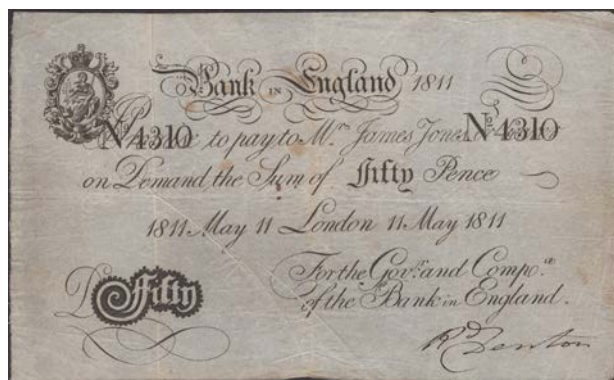 Bank IN England 1811
No. 4310 No. 4310
to pay to Mrs. James Jones
on Demand the Sum of Fifty Pence
1811 May 11 London 11 May 1811
For the Govr. and Compa.
of the Bank in England.
Fifty
Rd Denton